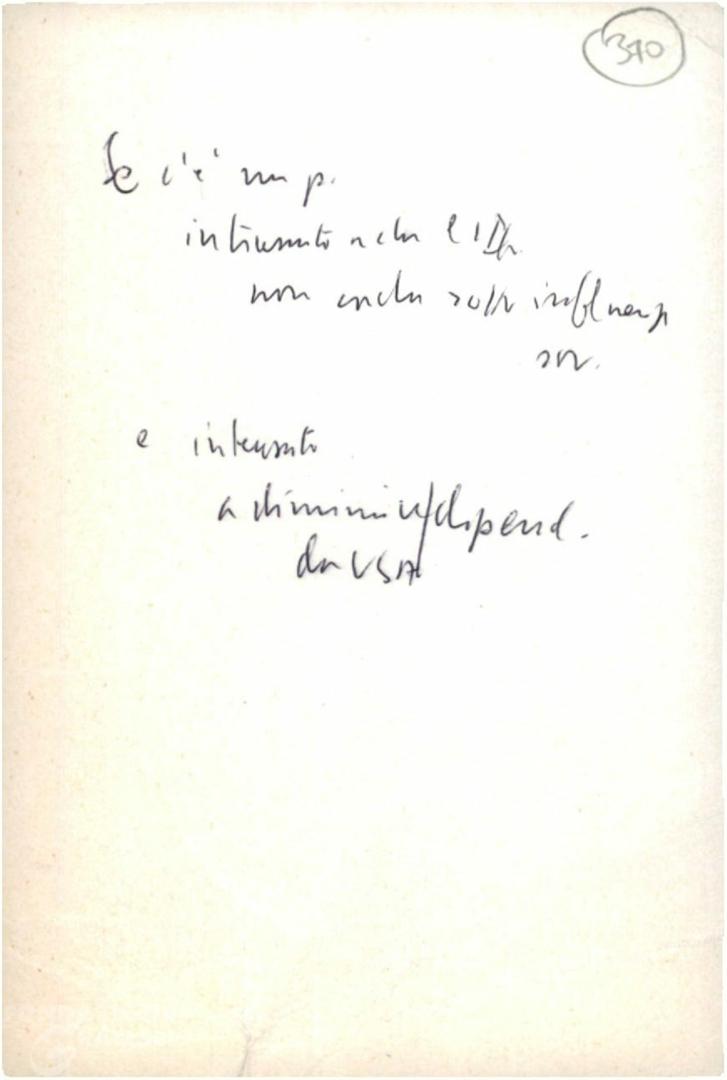 340
Se c'è un p.
interessato a che l'IDn
non cada sotto influenza
sov.
e interessato
a diminuire dipend.
da USA